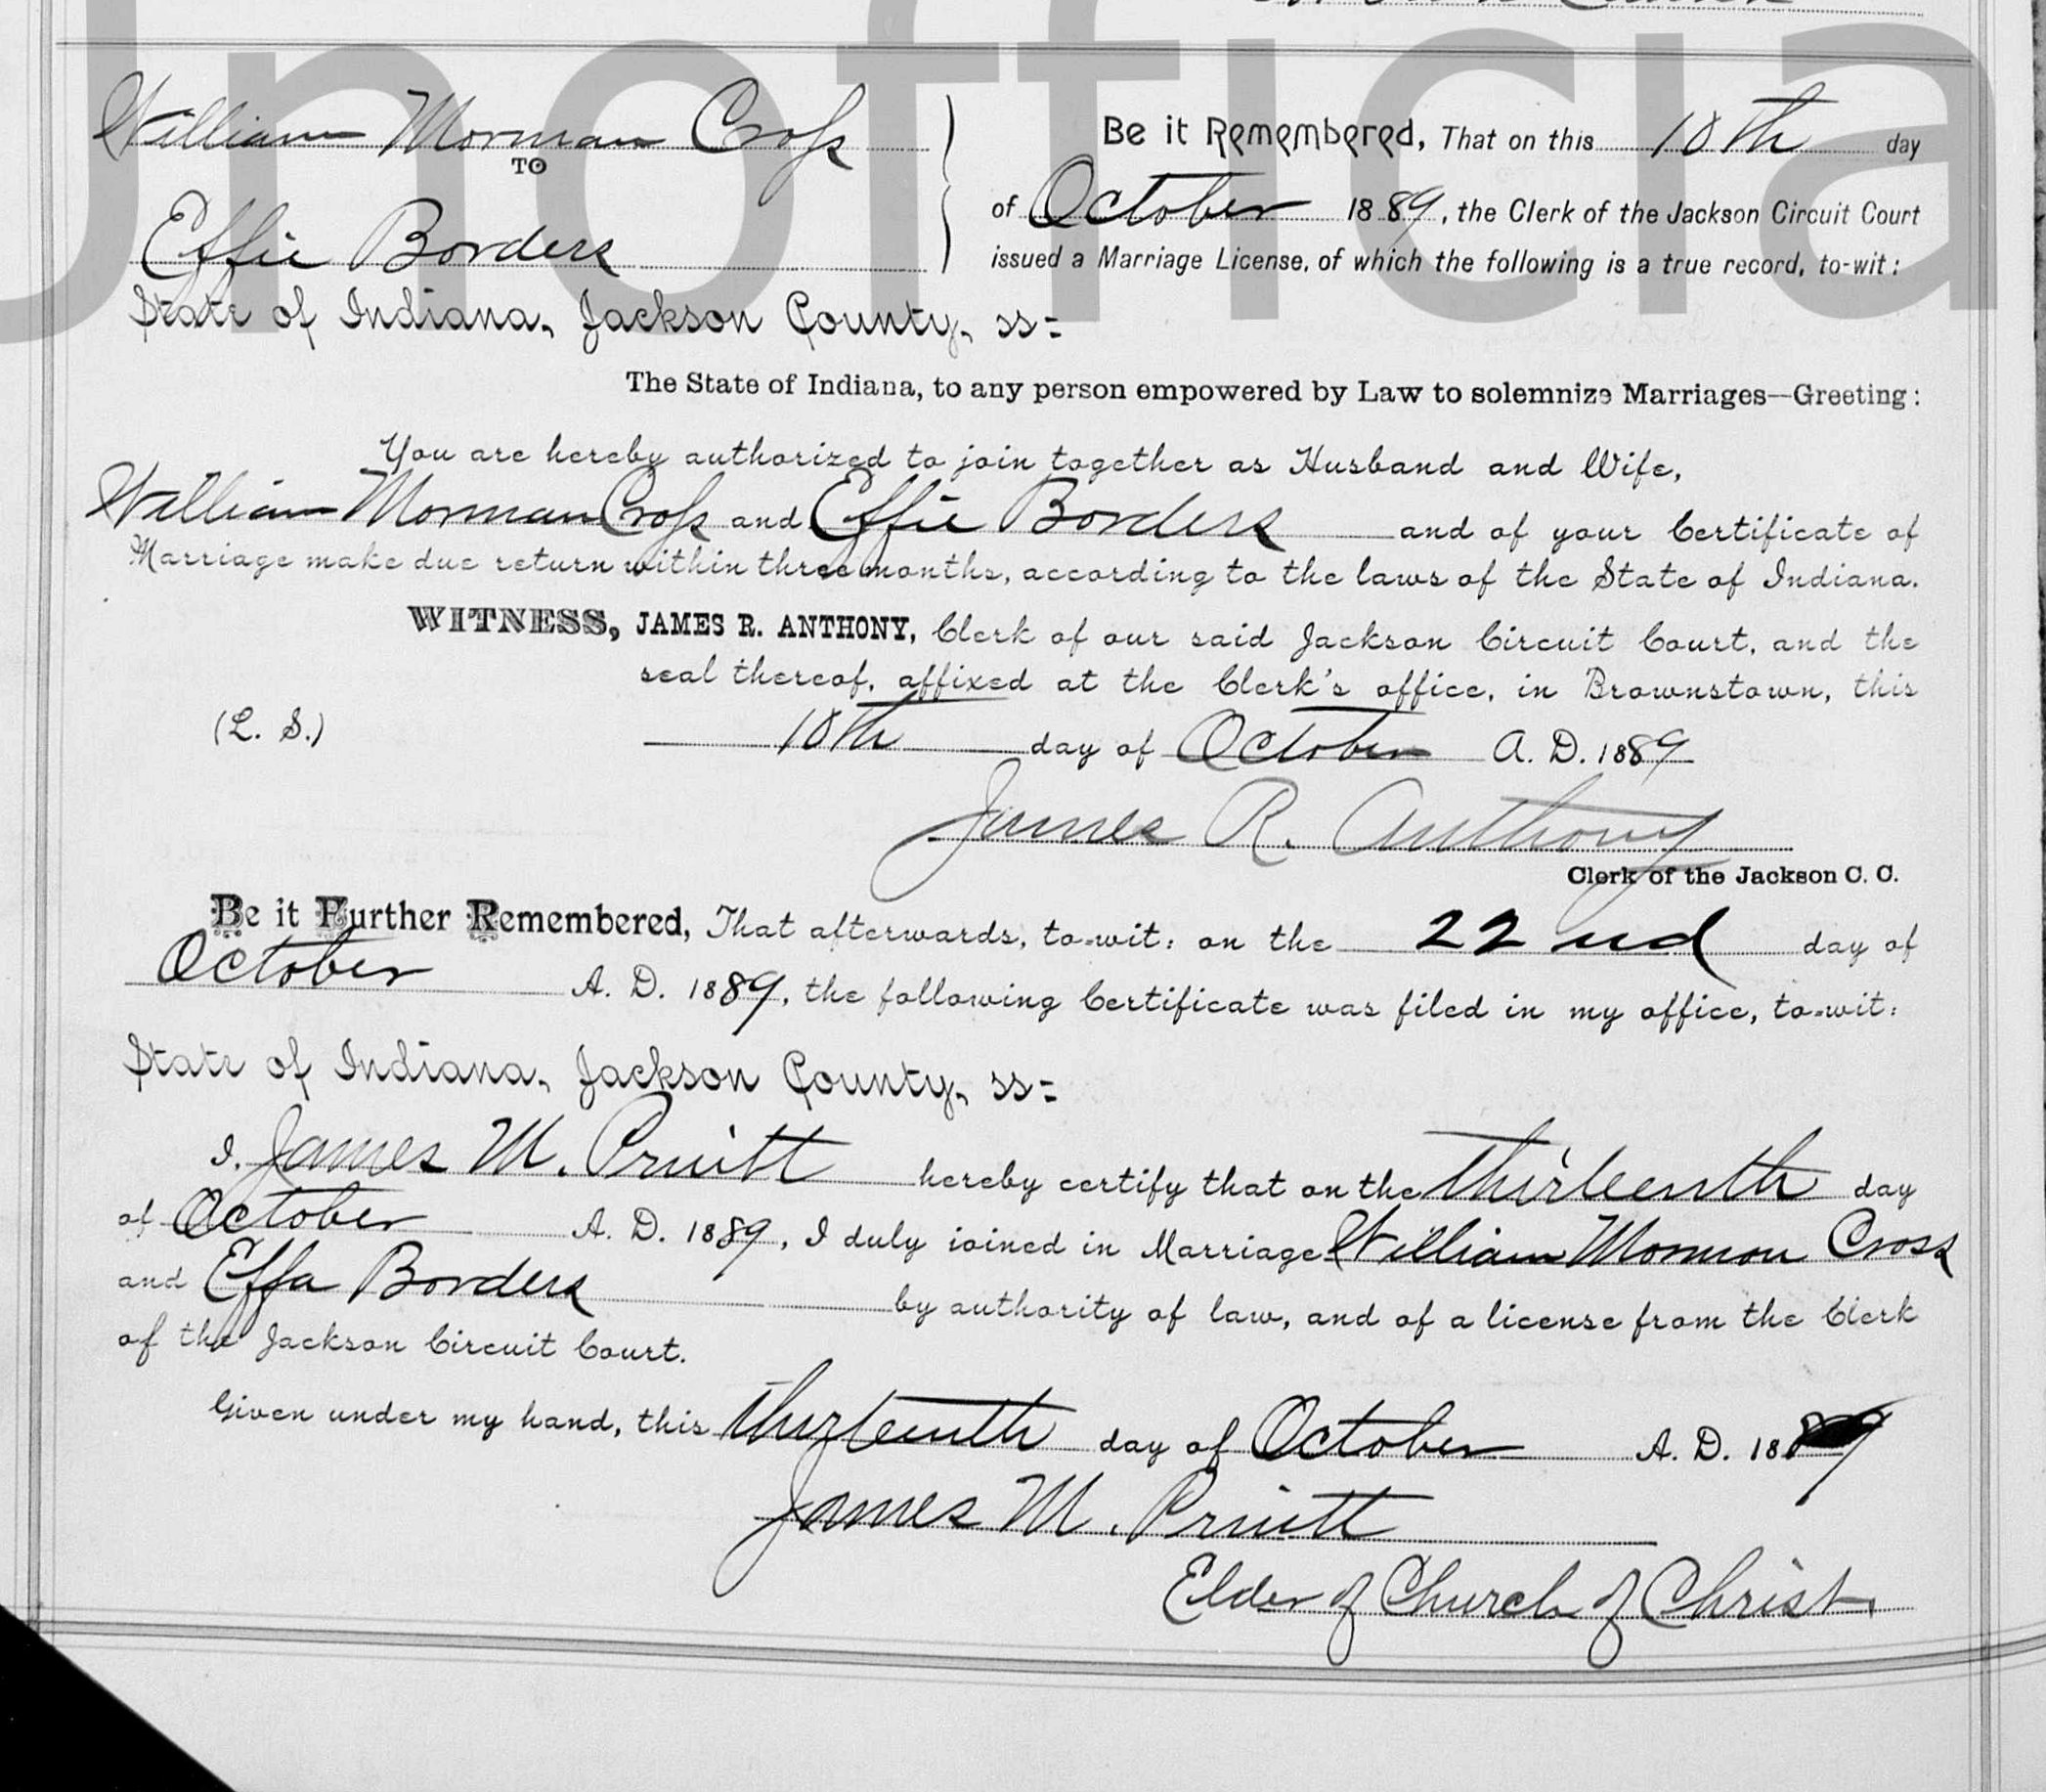 Unofficia
William Morman Cross
TO
Effie Borders
Be it Remembered, That on this 10th day
of October 1889, the Clerk of the Jackson Circuit Court
issued a Marriage License, of which the following is a true record, to-wit:
State of Indiana, Jackson County, ss:
The State of Indiana, to any person empowered by Law to solemnize Marriages—Greeting:
You are hereby authorized to join together as Husband and Wife,
William Morman Cross and Effie Borders and of your Certificate of
Marriage make due return within three months, according to the laws of the State of Indiana.
WITNESS, JAMES R. ANTHONY, Clerk of our said Jackson Circuit Court, and the
seal thereof, affixed at the Clerk's office, in Brownstown, this
(L. S.) 10th day of October A. D. 1889
James R. Anthony
Clerk of the Jackson C. C.
Be it Further Remembered, That afterwards, to-wit: on the 22nd day of
October A. D. 1889, the following Certificate was filed in my office, to-wit:
State of Indiana, Jackson County, ss:
I, James M. Pruitt hereby certify that on the thirteenth day
of October A. D. 1889, I duly joined in Marriage William Mormon Cross
and Effa Borders by authority of law, and of a license from the Clerk
of the Jackson Circuit Court.
Given under my hand, this thirteenth day of October A. D. 1889
James M. Pruitt
Elder of Church of Christ